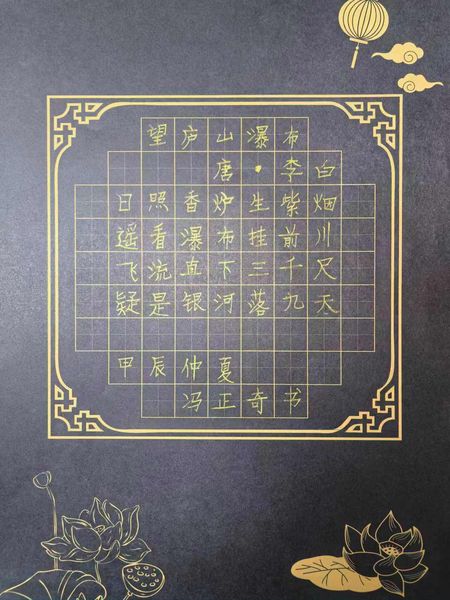 望庐山瀑布
唐·李白
日照香炉生紫烟
遥看瀑布挂前川
飞流直下三千尺
疑是银河落九天
甲辰仲夏
冯正奇书